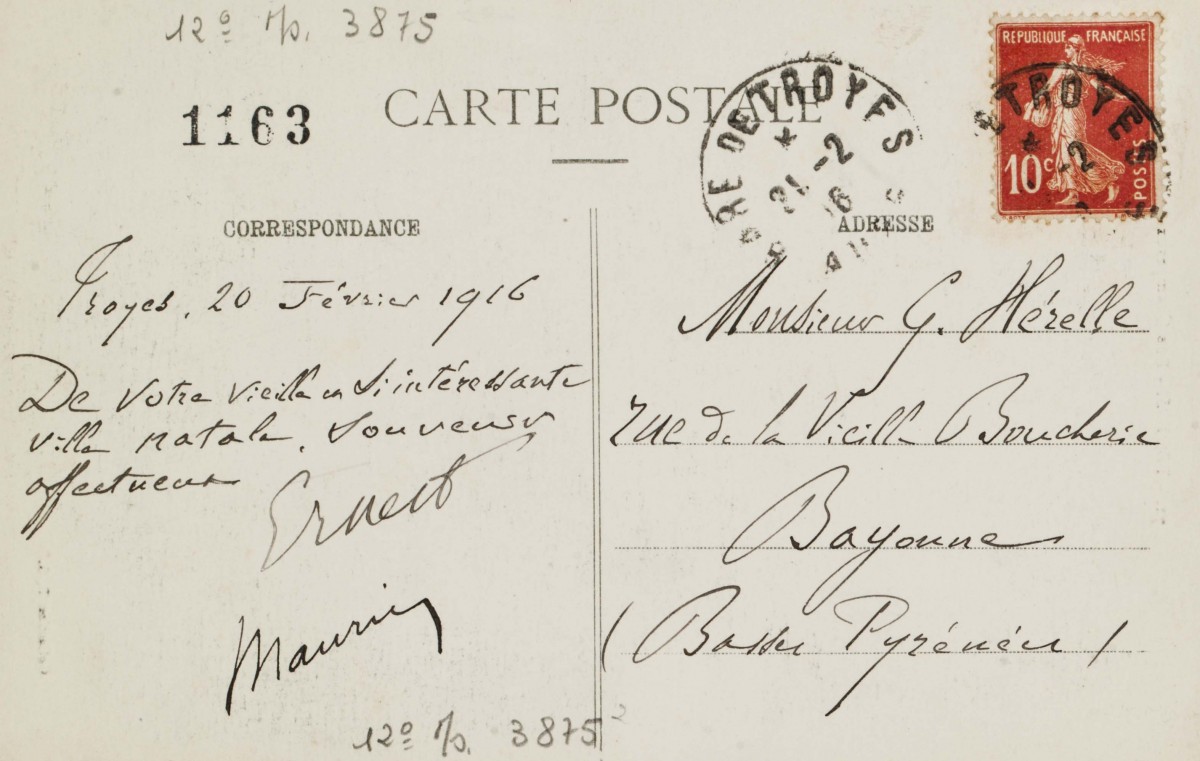 12º 3875
1163
CARTE POSTALE
RÉPUBLIQUE FRANÇAISE
10 c
POSTES
GARE DE TROYES
* 21-2
16
E TROYES
* -2
CORRESPONDANCE
Troyes, 20 Février 1916
De votre vieille et si intéressante
ville natale, souvenir
affectueux
Ernest
Maurice
12º 3875²
ADRESSE
Monsieur G. Hérelle
rue de la Vieille Boucherie
Bayonne
(Basses Pyrénées)